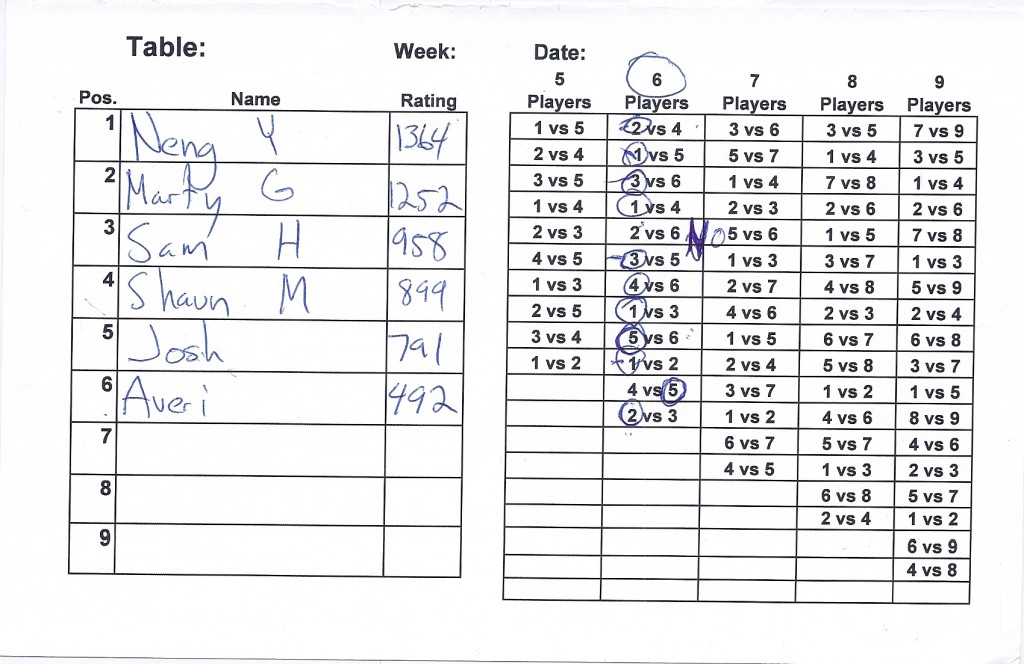 Table: Week: Date:
5 6 7 8 9
Pos. Name Rating Players Players Players Players Players
1 Neng Y 1364
2 Marty G 1252
3 Sam H 958
4 Shaun M 899
5 Josh 791
6 Averi 492
7
8
9
1 vs 5 2 vs 4 3 vs 6 3 vs 5 7 vs 9
2 vs 4 1 vs 5 5 vs 7 1 vs 4 3 vs 5
3 vs 5 3 vs 6 1 vs 4 7 vs 8 1 vs 4
1 vs 4 1 vs 4 2 vs 3 2 vs 6 2 vs 6
2 vs 3 2 vs 6 No 5 vs 6 1 vs 5 7 vs 8
4 vs 5 3 vs 5 1 vs 3 3 vs 7 1 vs 3
1 vs 3 4 vs 6 2 vs 7 4 vs 8 5 vs 9
2 vs 5 1 vs 3 4 vs 6 2 vs 3 2 vs 4
3 vs 4 5 vs 6 1 vs 5 6 vs 7 6 vs 8
1 vs 2 1 vs 2 2 vs 4 5 vs 8 3 vs 7
4 vs 5 3 vs 7 1 vs 2 1 vs 5
2 vs 3 1 vs 2 4 vs 6 8 vs 9
6 vs 7 5 vs 7 4 vs 6
4 vs 5 1 vs 3 2 vs 3
6 vs 8 5 vs 7
2 vs 4 1 vs 2
6 vs 9
4 vs 8